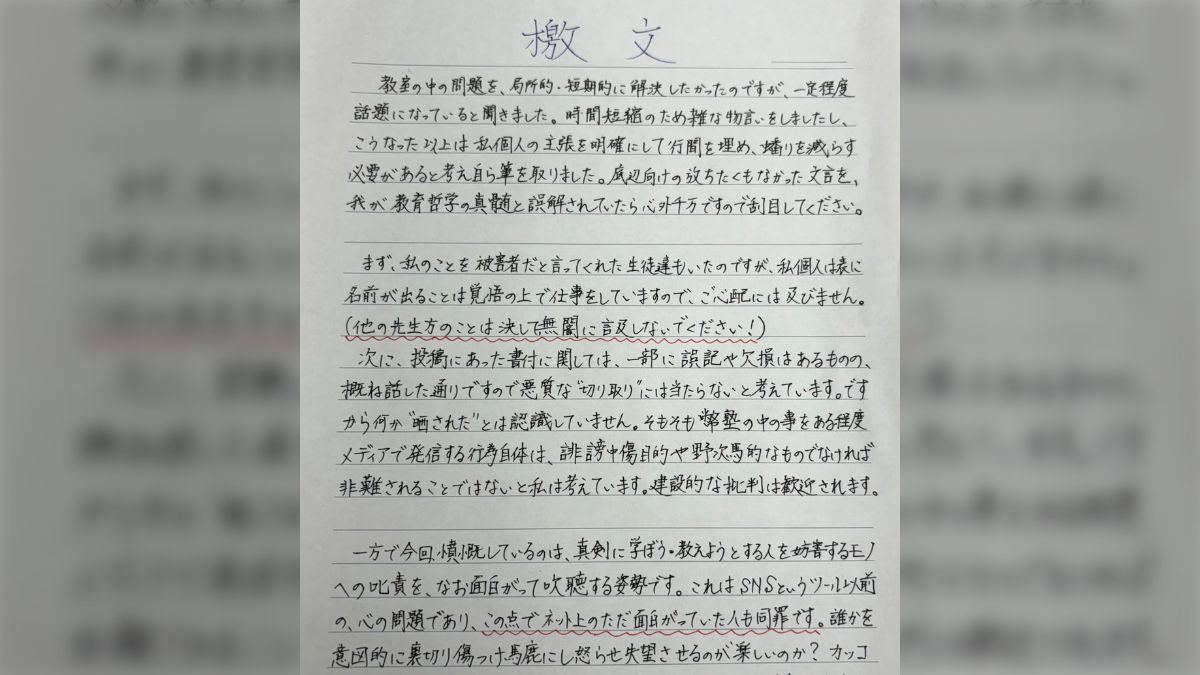 檄文
教室の中の問題を、局所的・短期的に解決したかったのですが、一定程度
話題になっていると聞きました。時間短縮のため雑な物言いをしましたし、
こうなった以上は私個人の主張を明確にして行間を埋め、蟠りを減らす
必要があると考え自ら筆を取りました。底辺向けの放ちたくもなかった文言を、
我が教育哲学の真髄と誤解されていたら心外千万ですので刮目してください。
まず、私のことを被害者だと言ってくれた生徒達もいたのですが、私個人は表に
名前が出ることは覚悟の上で仕事をしていますので、ご心配には及びません。
(他の先生方のことは決して無闇に言及しないでください!)
次に、投稿にあった書付に関しては、一部に誤記や欠損はあるものの、
概ね話した通りですので悪質な“切り取り”には当たらないと考えています。です
から何か“晒された”とは認識していません。そもそも弊塾の中の事をある程度
メディアで発信する行為自体は、誹謗中傷目的や野次馬的なものでなければ
非難されることではないと私は考えています。建設的な批判は歓迎されます。
一方で今回、憤慨しているのは、真剣に学ぼう・教えようとする人を妨害するモノ
への叱責を、なお面白がって吹聴する姿勢です。これはSNSというツール以前
の、心の問題であり、この点でネット上のただ面白がっていた人も同罪です。誰かを
意図的に裏切り傷つけ馬鹿にし怒らせ失望させるのが楽しいのか? カッコ